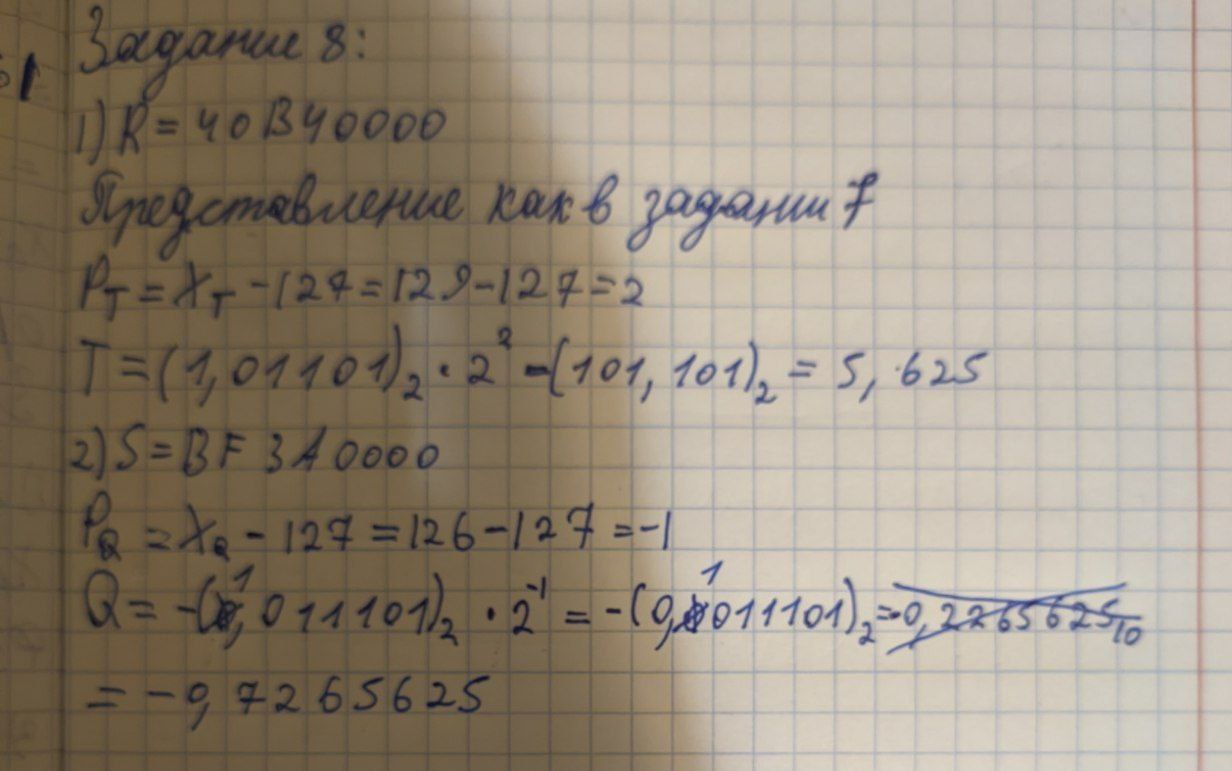 Задание 8:
1) R = 40B40000
Представление как в задании 7
P_T = X_T - 127 = 129 - 127 = 2
T = (1,01101)₂ · 2² = (101,101)₂ = 5,625
2) S = BF3A0000
P_Q = X_Q - 127 = 126 - 127 = -1
Q = -(1,011101)₂ · 2⁻¹ = -(0,1011101)₂ = -0,2265625₁₀
= -0,7265625